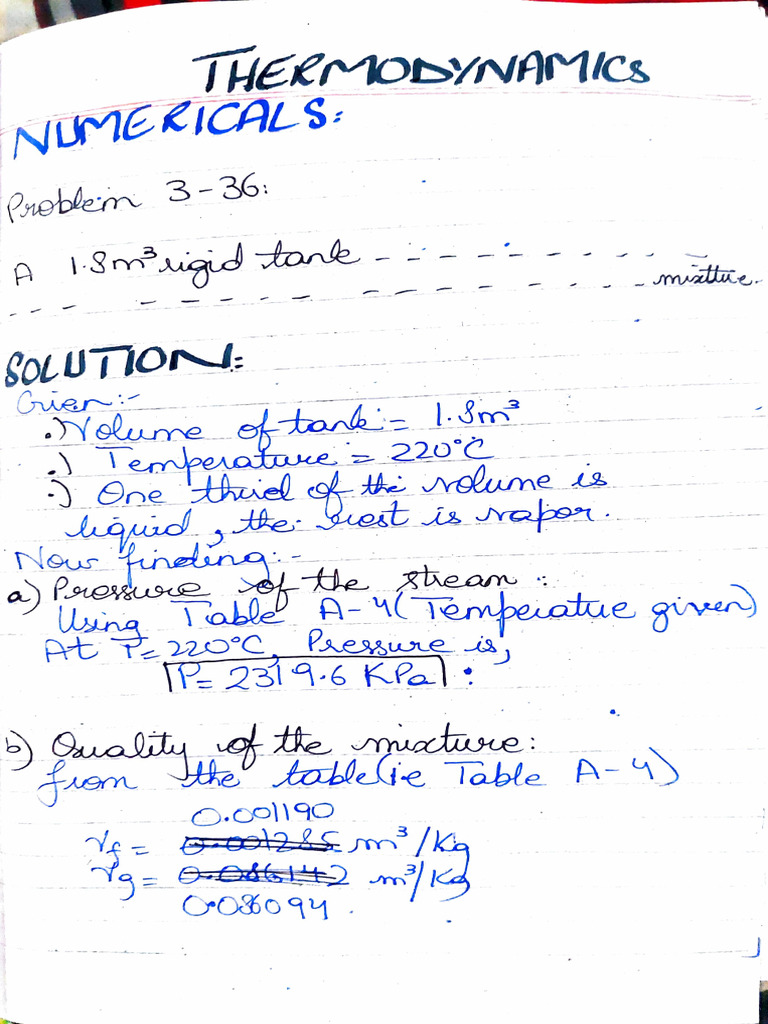 THERMODYNAMICS
NUMERICALS:
Problem 3-36:
A 1.8m³ rigid tank - - - - - - - - - -
- - - - - - - - - - - - - mixttue.
SOLUTION:
Given:-
.) Volume of tank = 1.8m³
.) Temperature = 220°C
.) One third of the volume is
liquid, the rest is vapor.
Now finding:-
a) Pressure of the stream:
Using Table A-4 (Temperatue given)
At T=220°C, Pressure is,
P= 2319.6 KPa :
b) Quality of the mixture:
from the table (i.e Table A-4)
0.001190
vf = 0.001285 m³/Kg
vg = 0.086142 m³/Kg
0.086094 .